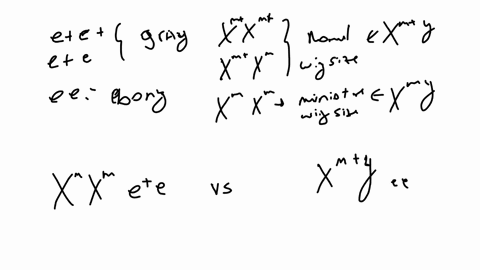 e+ e+ } gray X^m+ X^m+ } Normal ← X^m+ y
e+ e X^m+ X^m } wing size
ee :- ebony X^m X^m → miniature ← X^m y
wing size
X^m X^m e+ e vs X^m+ y ee